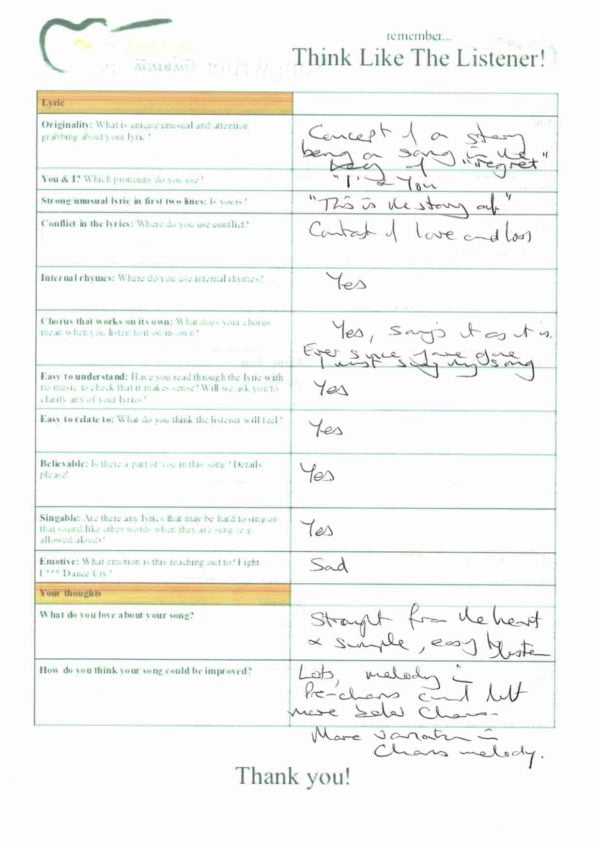 remember...
Think Like The Listener!
Lyric
Originality: What is unique unusual and attention
grabbing about your lyric?
Concept of a story
being a song in the
key of "regret"
You & I? Which pronouns do you use?
"I" & You
Strong unusual lyric in first two lines: Is yours?
"This is the story of"
Conflict in the lyrics: Where do you use conflict?
Contrast of love and loss
Internal rhymes: Where do you use internal rhymes?
Yes
Chorus that works on its own: What does your chorus
mean when you listen to it on its own?
Yes, says it as it is.
Ever since
I must sing my song
Easy to understand: Have you read through the lyric with
no music to check that it makes sense? Will we ask you to
clarify any of your lyrics?
Yes
Easy to relate to: What do you think the listener will feel?
Yes
Believable: Is there a part of you in this song? Details
please!
Yes
Singable: Are there any lyrics that may be hard to sing or
that sound like other words when they are sung (e.g.
allowed aloud)?
Yes
Emotive: What emotion is this reaching out to? Fight
F*** Dance Cry?
Sad
Your thoughts
What do you love about your song?
Straight from the heart
& simple, easy to listen
How do you think your song could be improved?
Lots, melody in
Pre-chorus could lift
more before Chorus.
More variation in
Chorus melody.
Thank you!